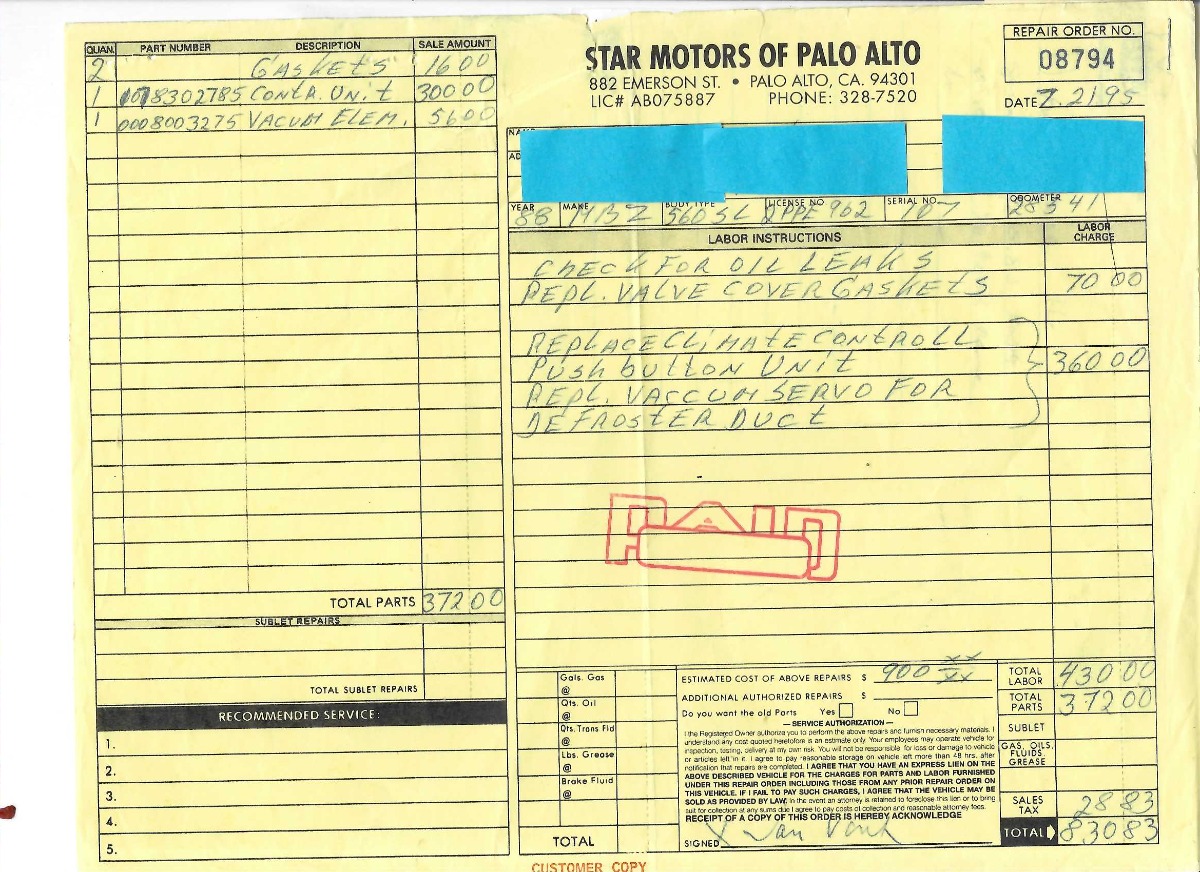 QUAN. PART NUMBER DESCRIPTION SALE AMOUNT
2 GASKETS 16 00
1 1078302785 CONTR. UNIT 300 00
1 0008003275 VACUM ELEM. 56 00
TOTAL PARTS 372 00
SUBLET REPAIRS
TOTAL SUBLET REPAIRS
RECOMMENDED SERVICE:
1.
2.
3.
4.
5.
STAR MOTORS OF PALO ALTO
882 EMERSON ST. • PALO ALTO, CA. 94301
LIC# AB075887 PHONE: 328-7520
REPAIR ORDER NO.
08794
DATE 7.21 95
YEAR MAKE BODY TYPE LICENSE NO SERIAL NO. ODOMETER
88 MBZ 560SL 2PPE962 107 28541
LABOR INSTRUCTIONS LABOR CHARGE
CHECK FOR OIL LEAKS
REPL. VALVE COVER GASKETS 70 00
REPLACE CLIMATE CONTROLL
PUSH BUTTON UNIT 360 00
REPL. VACCUM SERVO FOR
DEFROSTER DUCT
PAID
Gals. Gas
@
Qts. Oil
@
Qts. Trans Fld
@
Lbs. Grease
@
Brake Fluid
@
TOTAL
ESTIMATED COST OF ABOVE REPAIRS $ 900 xx/xx
ADDITIONAL AUTHORIZED REPAIRS $
Do you want the old Parts Yes No
— SERVICE AUTHORIZATION —
I the Registered Owner authorize you to perform the above repairs and furnish necessary materials. I
understand any cost quoted heretofore is an estimate only. Your employees may operate vehicle for
inspection, testing, delivery at my own risk. You will not be responsible for loss or damage to vehicle
or articles left in it. I agree to pay reasonable storage on vehicle left more than 48 hrs. after
notification that repairs are completed. I AGREE THAT YOU HAVE AN EXPRESS LIEN ON THE
ABOVE DESCRIBED VEHICLE FOR THE CHARGES FOR PARTS AND LABOR FURNISHED
UNDER THIS REPAIR ORDER INCLUDING THOSE FROM ANY PRIOR REPAIR ORDER ON
THIS VEHICLE. IF I FAIL TO PAY SUCH CHARGES, I AGREE THAT THE VEHICLE MAY BE
SOLD AS PROVIDED BY LAW. In the event an attorney is retained to foreclose this lien or to bring
suit for collection at any sums due I agree to pay costs of collection and reasonable attorney fees.
RECEIPT OF A COPY OF THIS ORDER IS HEREBY ACKNOWLEDGE
SIGNED X
TOTAL LABOR 430 00
TOTAL PARTS 372 00
SUBLET
GAS, OILS, FLUIDS, GREASE
SALES TAX 28 83
TOTAL 830 83
CUSTOMER COPY